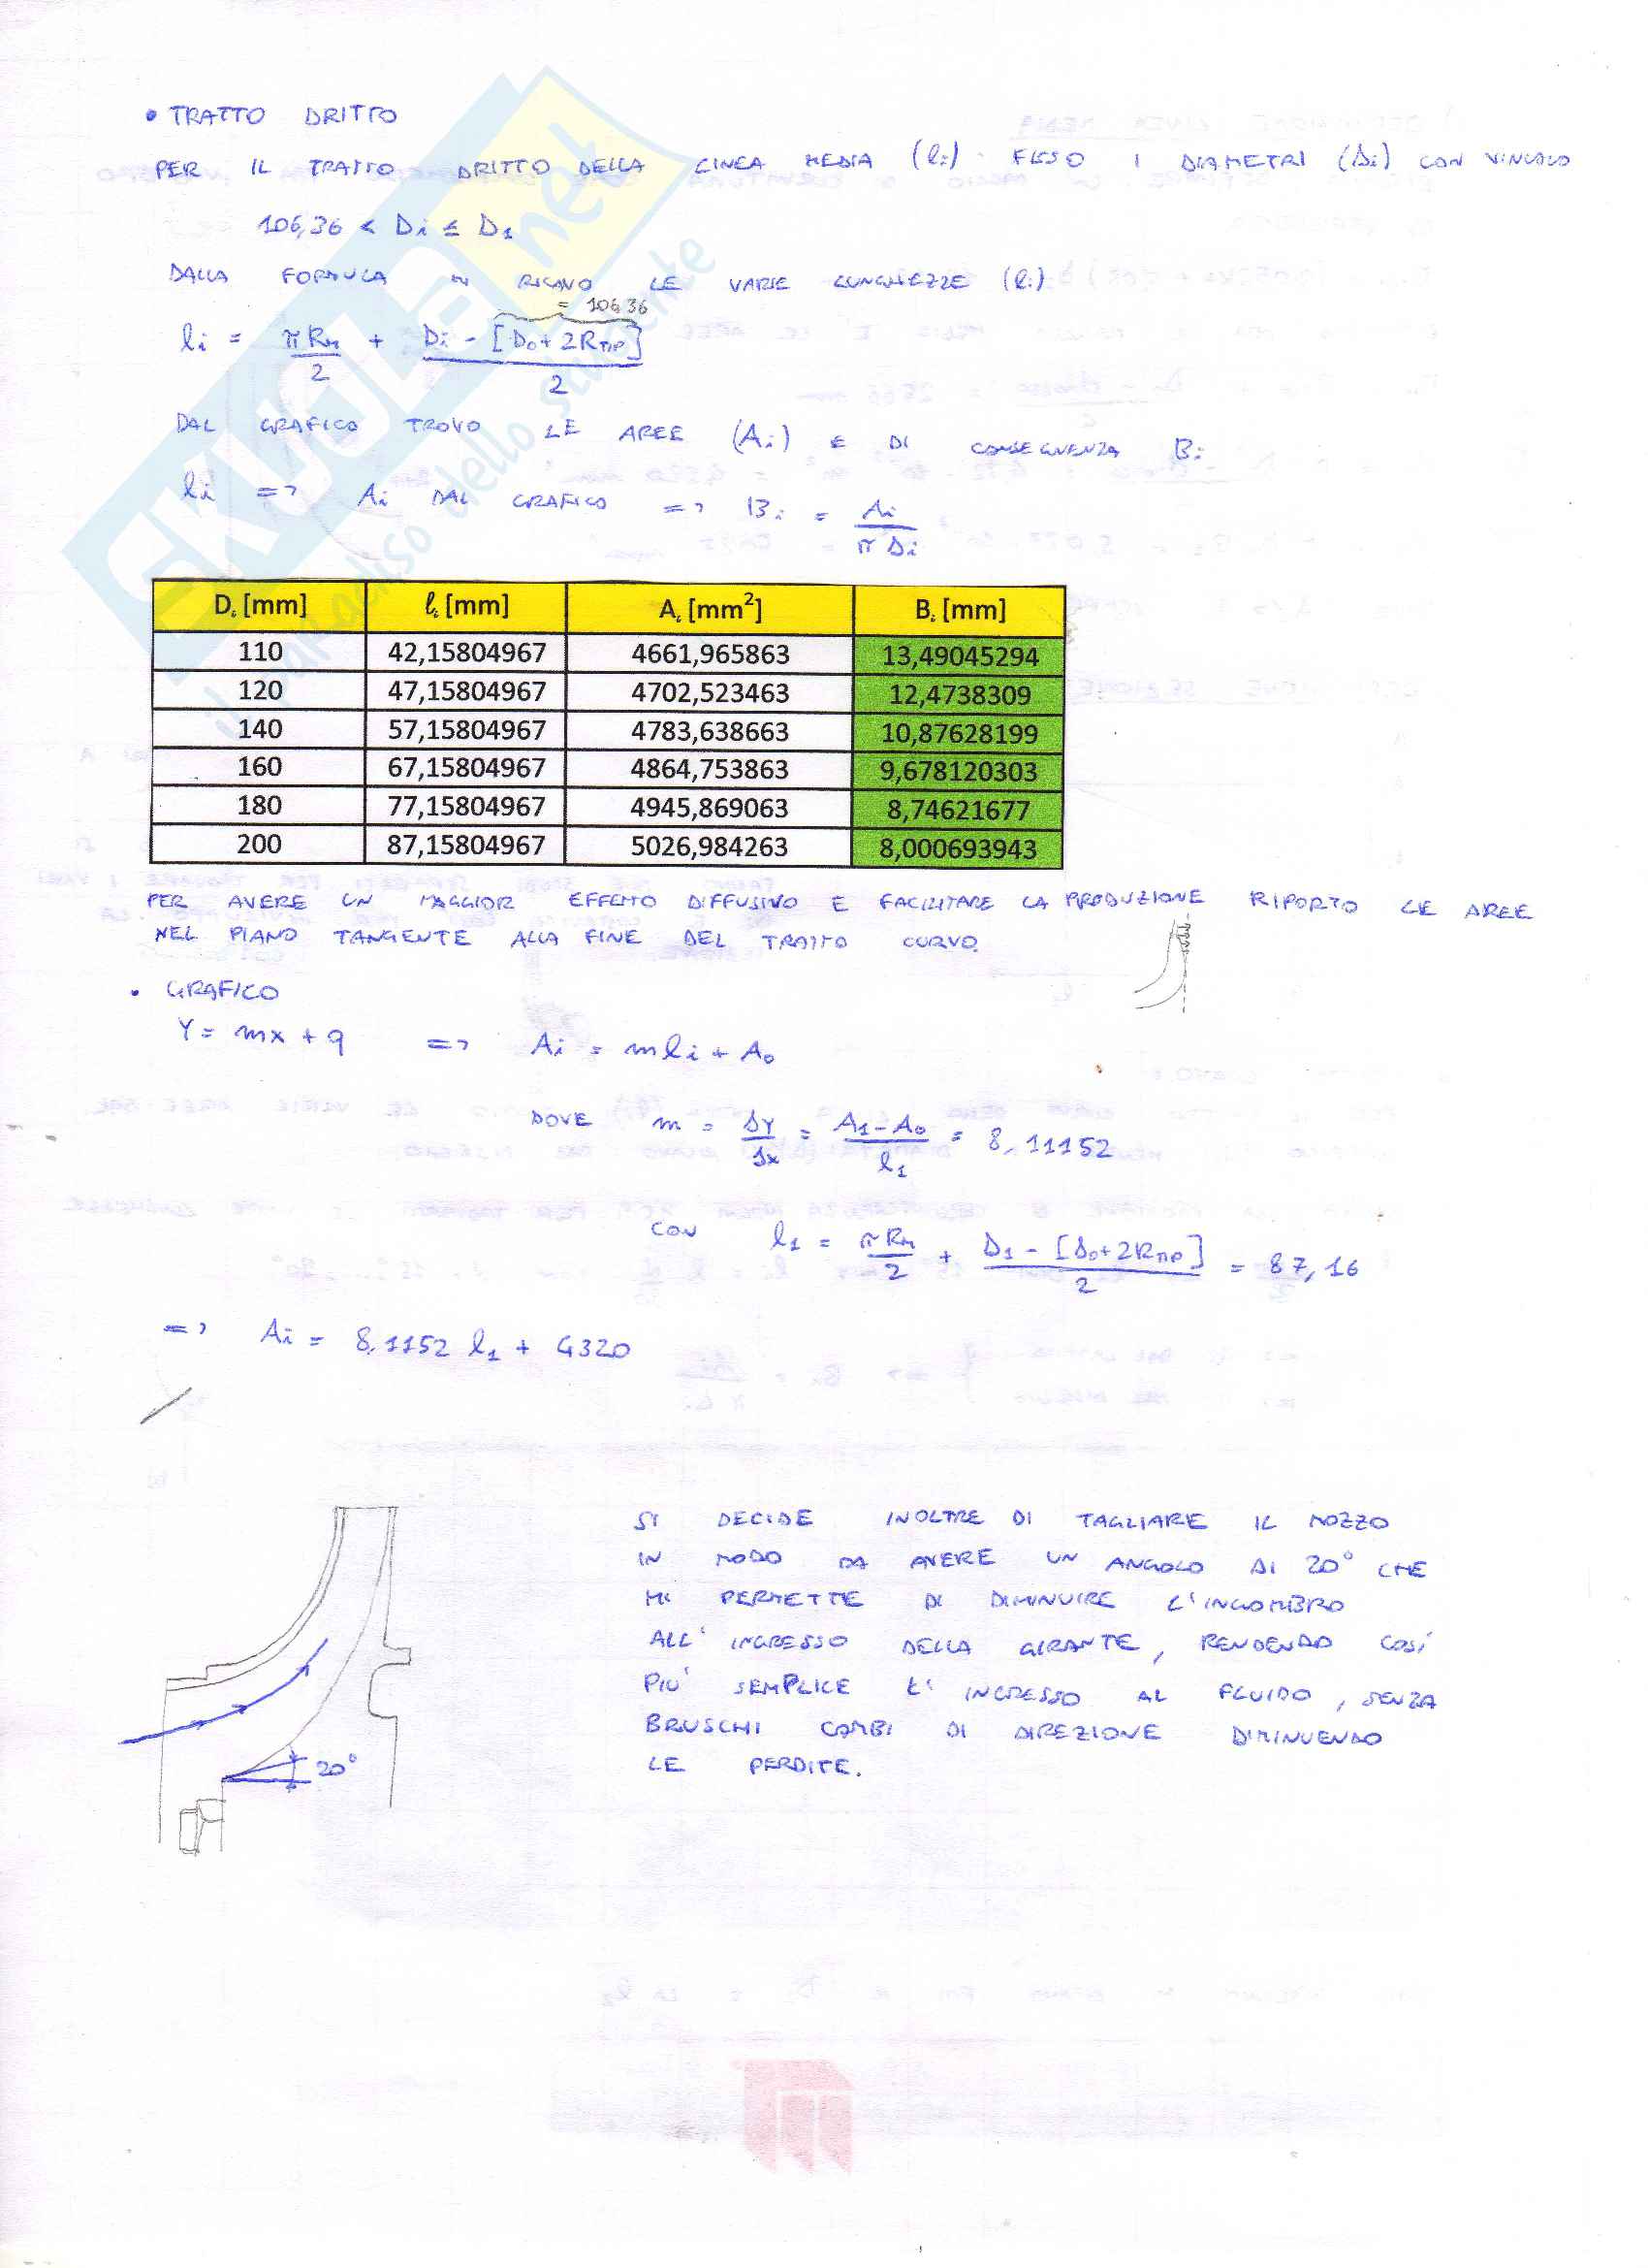 • TRATTO DRITTO
PER IL TRATTO DRITTO DELLA LINEA MEDIA (li) FISSO I DIAMETRI (Di) CON VINCOLO
106,36 < Di ≤ D1
DALLA FORMULA RICAVO LE VARIE LUNGHEZZE (li)
= 106,36
li = πRM/2 + (Di - [D0 + 2RTIP])/2
DAL GRAFICO TROVO LE AREE (Ai) E DI CONSEGUENZA Bi
li => Ai DAL GRAFICO => Bi = Ai/πDi
Di [mm] ℓi [mm] Ai [mm²] Bi [mm]
110 42,15804967 4661,965863 13,49045294
120 47,15804967 4702,523463 12,4738309
140 57,15804967 4783,638663 10,87628199
160 67,15804967 4864,753863 9,678120303
180 77,15804967 4945,869063 8,74621677
200 87,15804967 5026,984263 8,000693943
PER AVERE UN MAGGIOR EFFETTO DIFFUSIVO E FACILITARE LA PRODUZIONE RIPORTO LE AREE
NEL PIANO TANGENTE ALLA FINE DEL TRATTO CURVO.
• GRAFICO
Y = mx + q => Ai = mli + A0
DOVE m = ΔY/Δx = (A1 - A0)/l1 = 8,11152
CON l1 = πRM/2 + (D1 - [D0 + 2RTIP])/2 = 87,16
=> Ai = 8,1152 l1 + 4320
SI DECIDE INOLTRE DI TAGLIARE IL MOZZO
IN MODO DA AVERE UN ANGOLO DI 20° CHE
MI PERMETTE DI DIMINUIRE L'INGOMBRO
ALL'INGRESSO DELLA GIRANTE, RENDENDO COSÌ
PIU' SEMPLICE L'INGRESSO AL FLUIDO, SENZA
BRUSCHI CAMBI DI DIREZIONE DIMINUENDO
LE PERDITE.
20°
SKUOLA.net
il paradiso dello studente